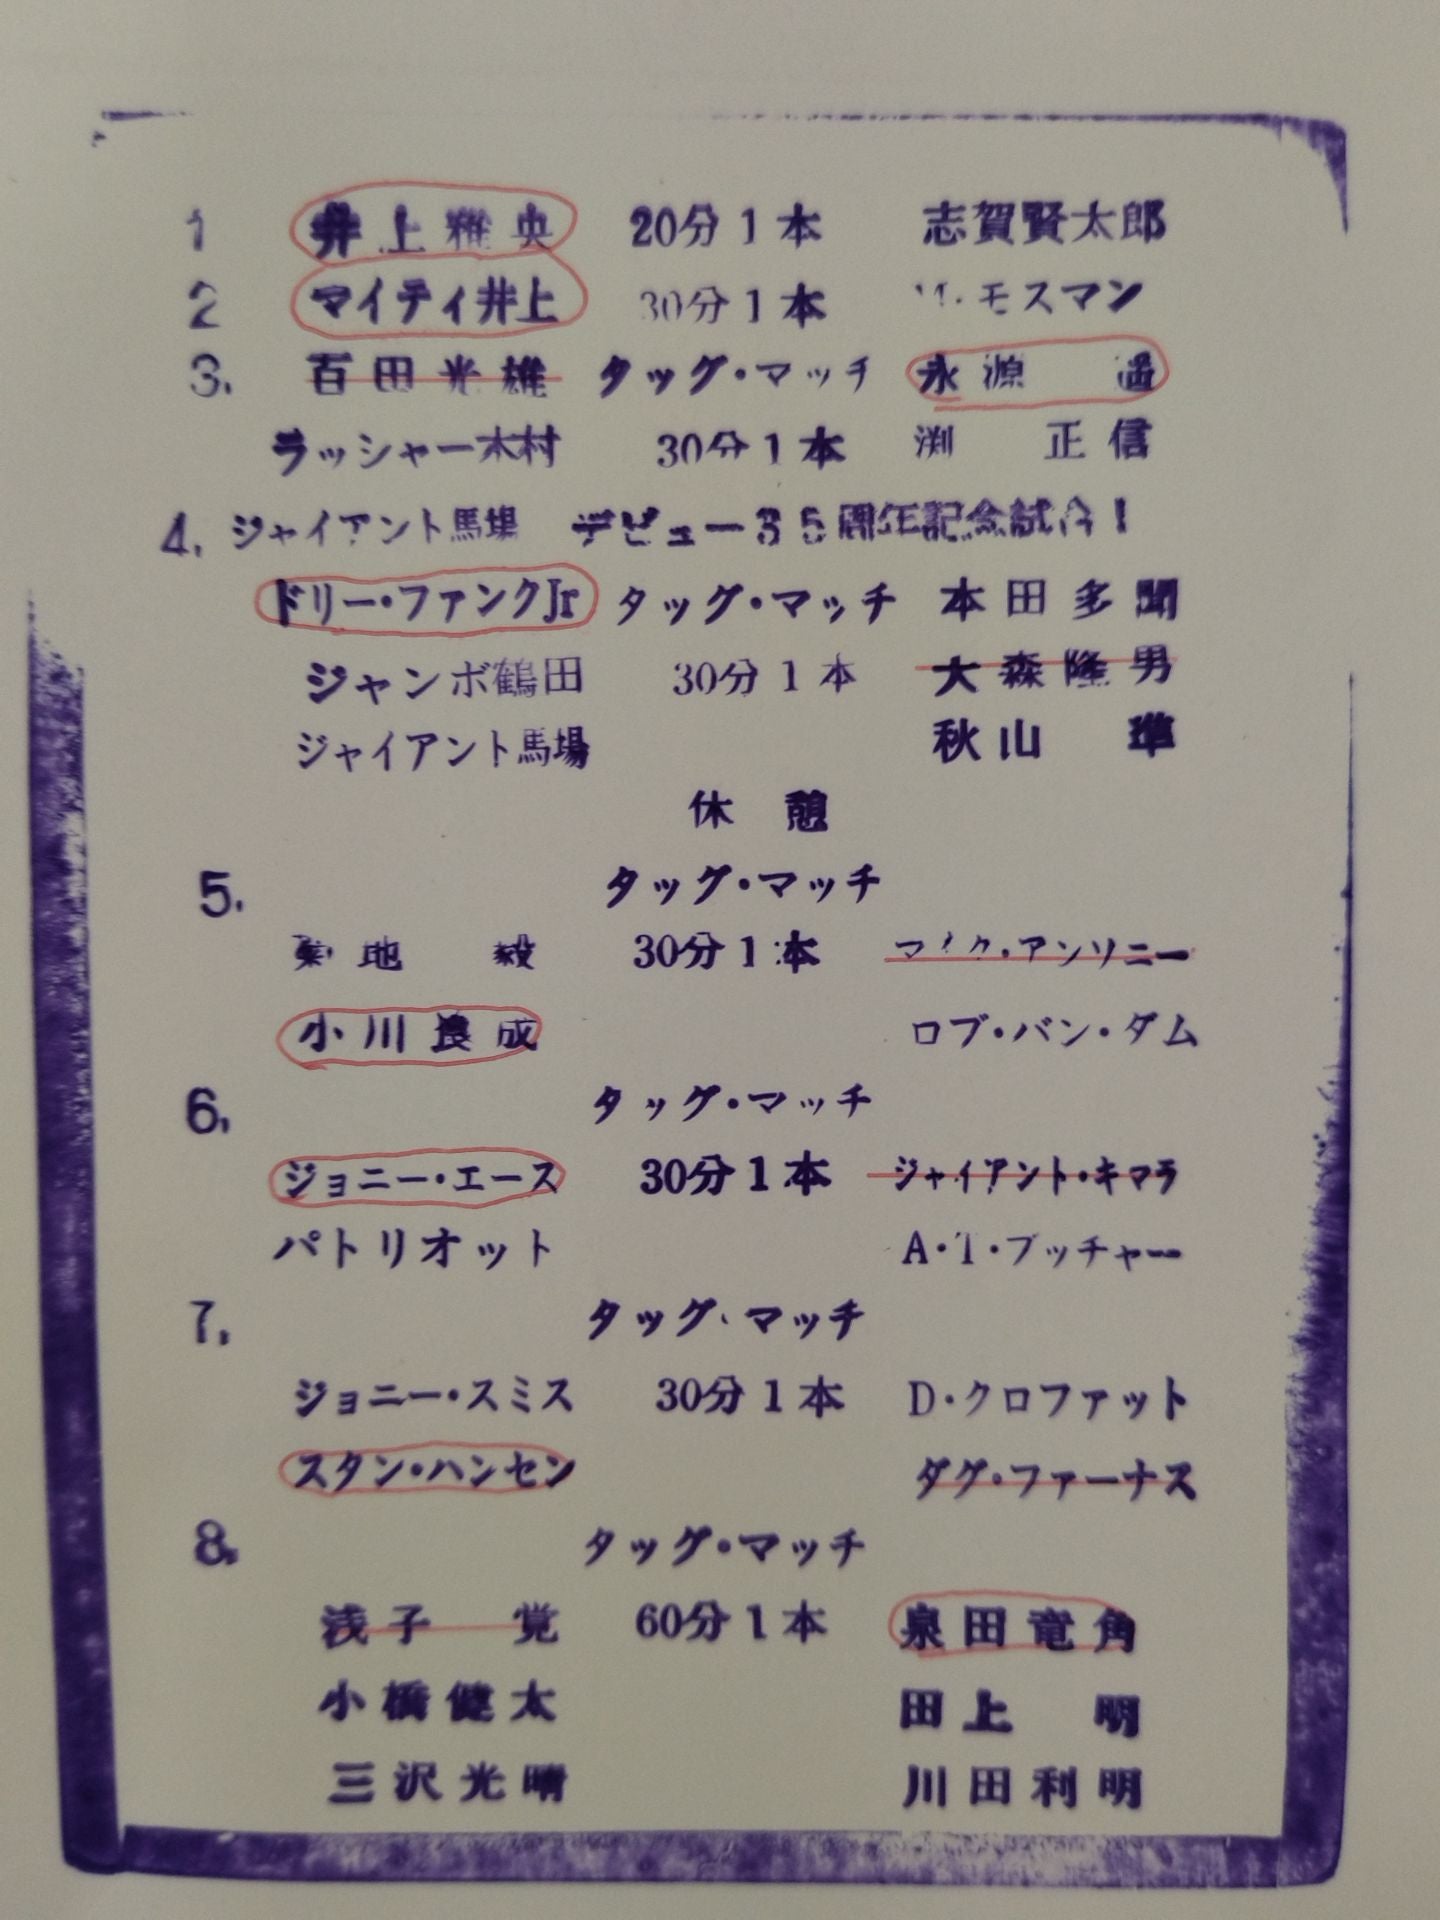 1 井上雅央 20分1本 志賀賢太郎
2 マイティ井上 30分1本 M・モスマン
3. 百田光雄 タッグ・マッチ 永源遥
ラッシャー木村 30分1本 渕正信
4. ジャイアント馬場 デビュー35周年記念試合！
ドリー・ファンクJr タッグ・マッチ 本田多聞
ジャンボ鶴田 30分1本 大森隆男
ジャイアント馬場 秋山準
休憩
5. タッグ・マッチ
菊地毅 30分1本 マイク・アンソニー
小川良成 ロブ・バン・ダム
6. タッグ・マッチ
ジョニー・エース 30分1本 ジャイアント・キマラ
パトリオット A・T・ブッチャー
7. タッグ・マッチ
ジョニー・スミス 30分1本 D・クロファット
スタン・ハンセン ダグ・ファーナス
8. タッグ・マッチ
浅子覚 60分1本 泉田竜角
小橋健太 田上明
三沢光晴 川田利明